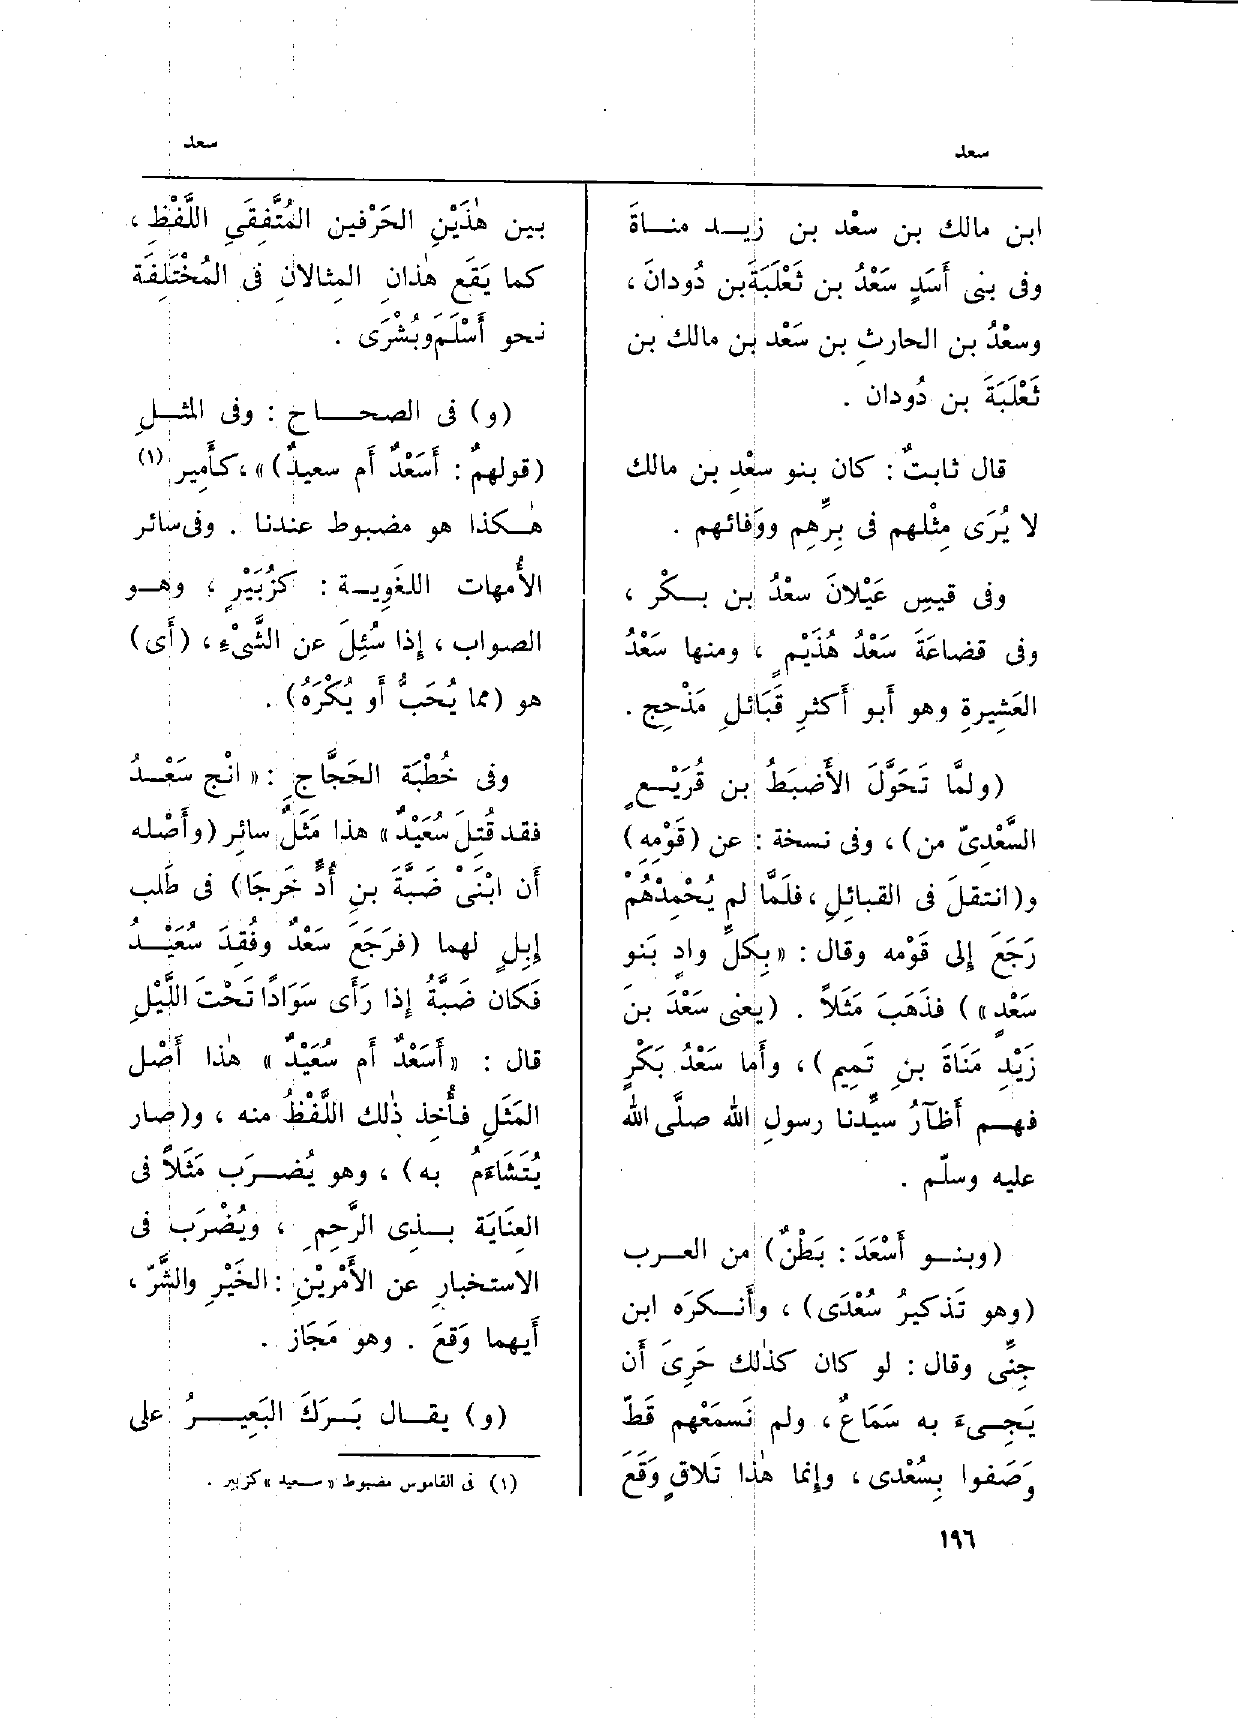 سعد
سعد
ابن مالك بن سعْد بن زيــد منــاةَ
وفى بنى أَسَدٍ سَعْدُ بن ثَعْلَبَةَ بن دُودانَ ،
وسعْدُ بن الحارثِ بن سَعْد بن مالك بن
ثَعْلَبَةَ بن دُودان .
قال ثابتٌ : كان بنو سعْدِ بن مالك
لا يُرَى مِثْلهم فى بِرِّهِم ووَفائهم .
وفى قيسِ عَيْلانَ سعْدُ بن بــكْر ،
وفى قضاعَةَ سَعْدُ هُذَيْمٍ ، ومنها سَعْدُ
العَشِيرةِ وهو أبو أكثرِ قَبَائلِ مَذْحِج .
(ولمَّا تَحَوَّلَ الأَضبَطُ بن قُرَيْــعٍ
السَّعْدِىّ من) ، وفى نسخة : عن (قَوْمِهِ)
و(انتقلَ فى القبائلِ ، فلَمَّا لم يُحْمِدْهُمْ
رَجَعَ إلى قَوْمه وقال : «بِكلِّ وادٍ بَنو
سَعْدٍ» ) فذَهَبَ مَثَلاً . (يعنى سَعْدَ بنَ
زَيْدِ مَنَاةَ بنِ تَمِيم) ، وأما سَعْدُ بَكْرٍ
فهــم أَظآرُ سيِّدنا رسولِ الله صلَّى الله
عليه وسلّم .
(وبنــو أَسْعَدَ : بَطْنٌ) من العــرب
(وهو تَذكيرُ سُعْدَى) ، وأَنــكرَه ابن
جِنِّى وقال : لو كان كذٰلك حَرِىَ أَن
يَجِــىءَ به سَمَاعٌ ، ولم نَسمَعْهم قَطّ
وَصَفوا بِسُعْدى ، وإنما هٰذا تَلاقٍ وَقَعَ
بين هٰذَيْنِ الحَرْفين المُتَّفِقَىِ اللَّفْظِ ،
كما يَقَع هٰذانِ المِثالانِ فى المُخْتَلِفَة
نحو أَسْلَمَ وبُشْرَى .
(و) فى الصحـــاح : وفى المثــلِ
(قولهمُ : أَسَعْدٌ أم سعيدٌ) » ، كأَمِير (١)
هٰــكذا هو مضبوط عندنا . وفى سائر
الأُمهات اللغوِيــة : كزُبَيْرٍ ، وهــو
الصواب ، إذا سُئِلَ عن الشَّىْءِ ، (أَى)
هو (مما يُحَبُّ أو يُكْرَهُ) .
وفى خُطْبَة الحَجَّاجِ : «انْج سَعْــدُ
فقد قُتِلَ سُعَيْدٌ» هذا مَثَلٌ سائر (وأَصْله
أن ابْنَىْ ضَبَّةَ بنِ أُدٍّ خَرَجَا) فى طَلَب
إِبِلٍ لهما (فرَجَعَ سَعْدٌ وفُقِدَ سُعَيْــدُ
فَكان ضَبَّةُ إذا رَأَى سَوَادًا تَحْتَ اللَّيْلِ
قال : «أَسَعْدٌ أم سُعَيْدٌ» هٰذا أَصْل
المَثَلِ فأُخِذ ذٰلك اللَّفْظُ منه ، و(صار
يُتَشَاءَمُ به) ، وهو يُضــرَب مَثَلاً فى
العِنَايَة بــذِى الرَّحِمِ ، ويُضْرَب فى
الاستخبارِ عن الأَمْرَيْنِ : الخَيْرِ والشَّرّ ،
أَيهما وَقَعَ . وهو مَجَاز .
(و) يقــال بَــرَكَ البَعِيــرُ على
(١) فى القاموس مضبوط «سعيد» كزبير .
١٩٦